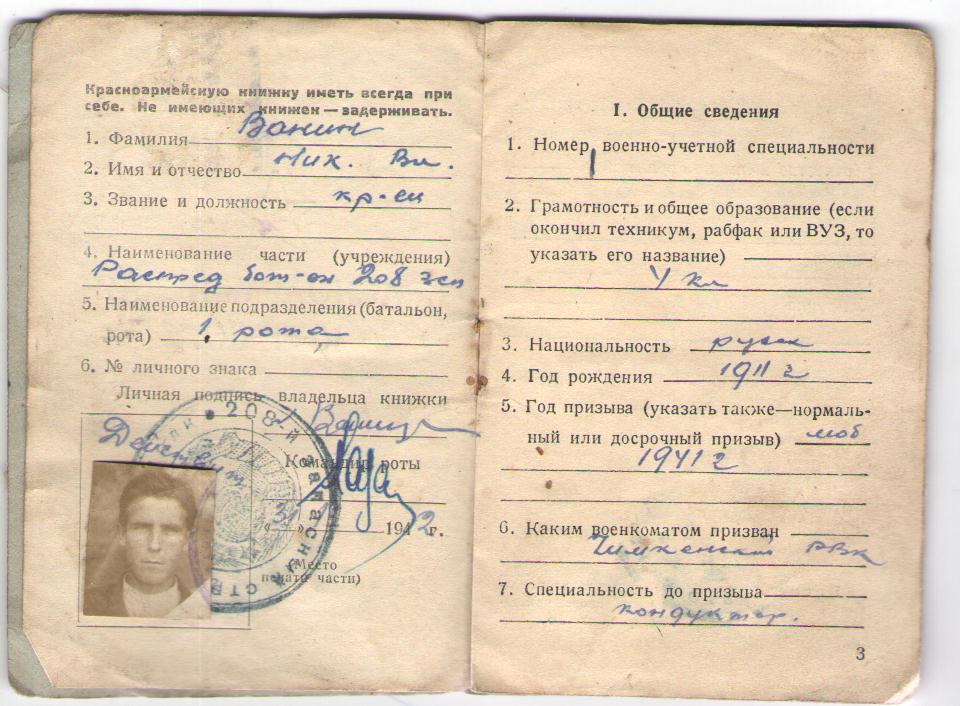 Красноармейскую книжку иметь всегда при
себе. Не имеющих книжек — задерживать.
1. Фамилия Ванин
2. Имя и отчество Ник. Вл.
3. Звание и должность кр-ец
4. Наименование части (учреждения)
Распред бат-он 208 зсп
5. Наименование подразделения (батальон,
рота) 1. рота
6. № личного знака
Личная подпись владельца книжки
208-й запасный
Действит.
Командир роты
1942г.
(Место
печати части)
I. Общие сведения
1. Номер военно-учетной специальности
1
2. Грамотность и общее образование (если
окончил техникум, рабфак или ВУЗ, то
указать его название)
4 кл
3. Национальность русск
4. Год рождения 1911 г
5. Год призыва (указать также—нормаль-
ный или досрочный призыв) моб
1941 г
6. Каким военкоматом призван
РВК
7. Специальность до призыва
кондуктор.
3